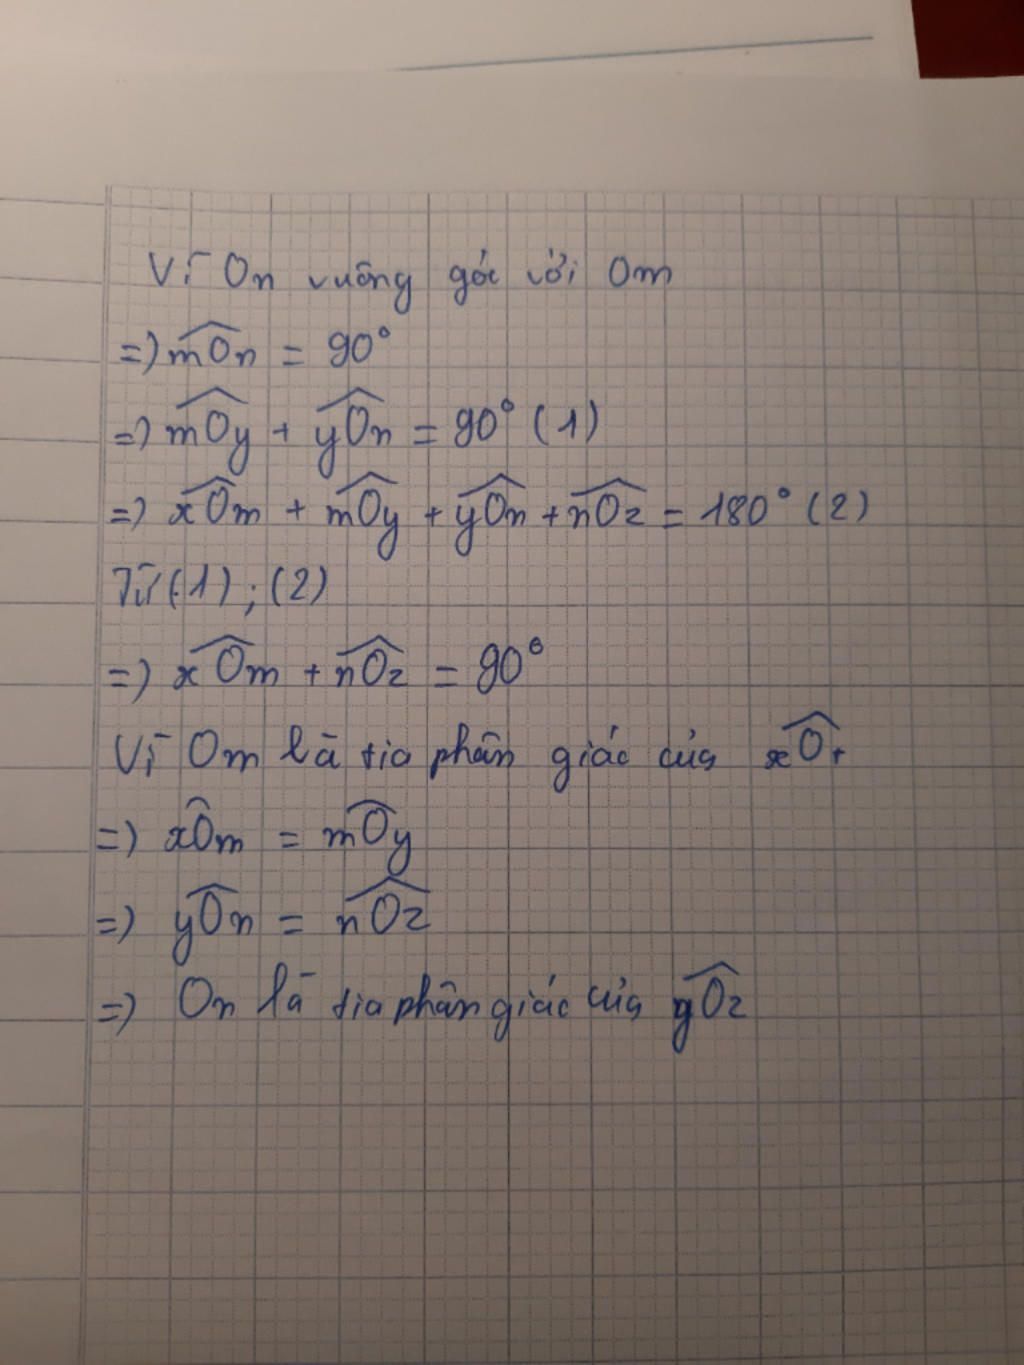 Vì On vuông góc với Om
=) mOn = 90°
=) mOy + yOn = 90° (1)
=) xOm + mOy + yOn + nOz = 180° (2)
Từ (1) ; (2)
=) xOm + nOz = 90°
Vì Om là tia phân giác của
=) xOm = mOy
=) yOn = nOz
=) On là tia phân giác của yOz